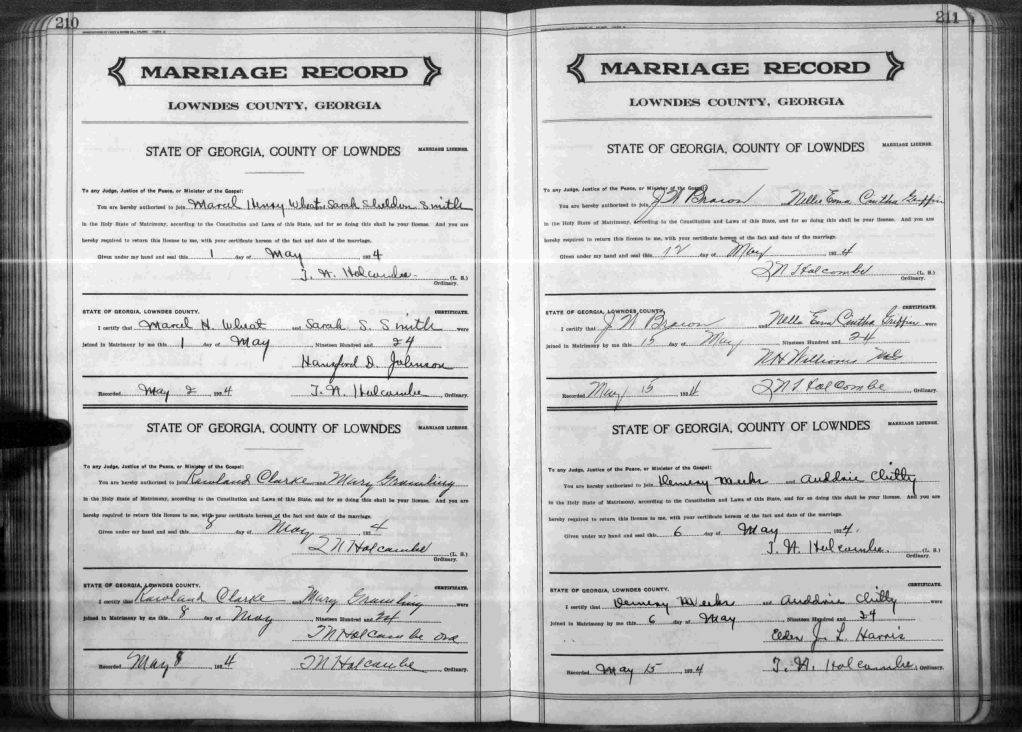 210
MARRIAGE RECORD
LOWNDES COUNTY, GEORGIA
STATE OF GEORGIA, COUNTY OF LOWNDES MARRIAGE LICENSE.
To any Judge, Justice of the Peace, or Minister of the Gospel:
You are hereby authorized to join Marcel Henry Wheat and Sarah Sheldon Smith
in the Holy State of Matrimony, according to the Constitution and Laws of this State, and for so doing this shall be your license. And you are
hereby required to return this license to me, with your certificate hereon of the fact and date of the marriage.
Given under my hand and seal this 1 day of May 1924
T. N. Holcombe (L. S.)
Ordinary.
STATE OF GEORGIA, LOWNDES COUNTY. CERTIFICATE.
I certify that Marcel H. Wheat and Sarah S. Smith were
joined in Matrimony by me this 1 day of May Nineteen Hundred and 24
Hansford D. Johnson
Recorded May 2 1924 T. N. Holcombe Ordinary.
STATE OF GEORGIA, COUNTY OF LOWNDES MARRIAGE LICENSE.
To any Judge, Justice of the Peace, or Minister of the Gospel:
You are hereby authorized to join Rowland Clarke and Mary Grambling
in the Holy State of Matrimony, according to the Constitution and Laws of this State, and for so doing this shall be your license. And you are
hereby required to return this license to me, with your certificate hereon of the fact and date of the marriage.
Given under my hand and seal this 8 day of May 1924
T N Holcombe (L. S.)
Ordinary.
STATE OF GEORGIA, LOWNDES COUNTY. CERTIFICATE.
I certify that Rowland Clarke and Mary Grambling were
joined in Matrimony by me this 8 day of May Nineteen Hundred and 24
T N Holcombe Ord
Recorded May 8 1924 T N Holcombe Ordinary.
211
MARRIAGE RECORD
LOWNDES COUNTY, GEORGIA
STATE OF GEORGIA, COUNTY OF LOWNDES MARRIAGE LICENSE.
To any Judge, Justice of the Peace, or Minister of the Gospel:
You are hereby authorized to join J W and Griffin
in the Holy State of Matrimony, according to the Constitution and Laws of this State, and for so doing this shall be your license. And you are
hereby required to return this license to me, with your certificate hereon of the fact and date of the marriage.
Given under my hand and seal this 12 day of May 1924
T N Holcombe (L. S.)
Ordinary.
STATE OF GEORGIA, LOWNDES COUNTY. CERTIFICATE.
I certify that J W and Griffin were
joined in Matrimony by me this 15 day of May Nineteen Hundred and 24
N H Williams
Recorded May 15 1924 T N Holcombe Ordinary.
STATE OF GEORGIA, COUNTY OF LOWNDES MARRIAGE LICENSE.
To any Judge, Justice of the Peace, or Minister of the Gospel:
You are hereby authorized to join Meeks and Chitty
in the Holy State of Matrimony, according to the Constitution and Laws of this State, and for so doing this shall be your license. And you are
hereby required to return this license to me, with your certificate hereon of the fact and date of the marriage.
Given under my hand and seal this 6 day of May 1924.
T. N. Holcombe (L. S.)
Ordinary.
STATE OF GEORGIA, LOWNDES COUNTY. CERTIFICATE.
I certify that Meeks and Chitty were
joined in Matrimony by me this 6 day of May Nineteen Hundred and 24
Elder J. L. Harris
Recorded May 15 1924 T. N. Holcombe, Ordinary.